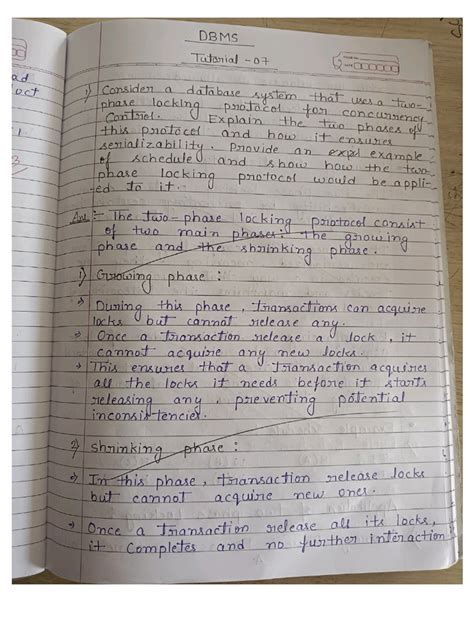 DBMS
Tutorial - 07
ad
oct
1) Consider a database system that uses a two-
phase locking protocol for concurrency
Control. Explain the two phases of
this protocol and how it ensures
serializability. Provide an example
of schedule and show how the two
phase locking protocol would be appli-
ed to it.
Ans :- The two-phase locking protocol consist
of two main phases: the growing
phase and the shrinking phase.
1) Growing phase :
→ During this phase, transactions can acquire
locks but cannot release any.
→ Once a transaction release a lock, it
cannot acquire any new locks.
→ This ensures that a transaction acquires
all the locks it needs before it starts
releasing any, preventing potential
inconsistencies.
2) shrinking phase :
→ In this phase, transaction release locks
but cannot acquire new ones.
→ Once a transaction release all its locks,
it completes and no further interaction